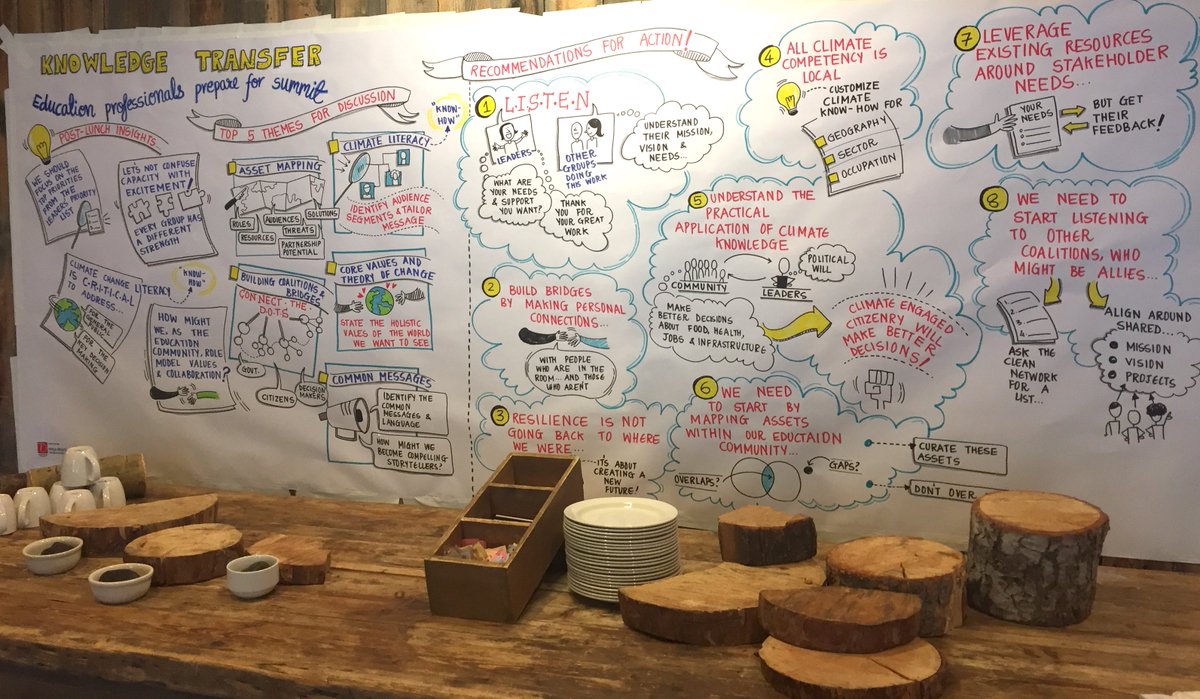 KNOWLEDGE TRANSFER
Education professionals prepare for summit
POST-LUNCH INSIGHTS...
WE SHOULD
FOCUS ON THE
TOP PRIORITIES
FROM THE
LEADERS' PRIORITY
LIST
LET'S NOT CONFUSE
CAPACITY WITH
EXCITEMENT!
EVERY GROUP HAS
A DIFFERENT
STRENGTH
CLIMATE CHANGE LITERACY
IS C-R-I-T-I-C-A-L
TO ADDRESS...
"KNOW-
HOW"
FOR THE
GENERAL
PUBLIC
FOR DECISION
MAKING
HOW MIGHT
WE, AS THE
EDUCATION
COMMUNITY, ROLE
MODEL VALUES
& COLLABORATION?
TOP 5 THEMES FOR DISCUSSION
"KNOW-
HOW"
ASSET MAPPING
ROLES
AUDIENCES
SOLUTIONS
THREATS
RESOURCES
PARTNERSHIP
POTENTIAL
CLIMATE LITERACY
IDENTIFY AUDIENCE
SEGMENTS & TAILOR
MESSAGE
BUILDING COALITIONS &
BRIDGES
CONNECT-THE-
D.O.T.S
GOVT.
CITIZENS
DECISION
MAKERS
CORE VALUES AND
THEORY OF CHANGE
STATE THE HOLISTIC
VALES OF THE WORLD
WE WANT TO SEE
COMMON MESSAGES
IDENTIFY THE
COMMON
MESSAGES &
LANGUAGE
HOW MIGHT WE
BECOME COMPELLING
STORYTELLERS?
RECOMMENDATIONS FOR ACTION!
1 L.I.S.T.E.N
LEADERS
WHAT ARE
YOUR NEEDS
& SUPPORT
YOU WANT?
OTHER
GROUPS
DOING
THIS WORK
THANK YOU
FOR YOUR
GREAT
WORK
UNDERSTAND
THEIR MISSION,
VISION &
NEEDS...
2 BUILD BRIDGES
BY MAKING PERSONAL
CONNECTIONS...
WITH PEOPLE
WHO ARE IN THE
ROOM... AND THOSE
WHO ARENT
3 RESILIENCE IS NOT
GOING BACK TO WHERE
WE WERE...
IT'S ABOUT
CREATING A
NEW
FUTURE!
4 ALL CLIMATE
COMPETENCY IS
LOCAL
CUSTOMIZE
CLIMATE
KNOW-HOW FOR
GEOGRAPHY
SECTOR
OCCUPATION
5 UNDERSTAND THE
PRACTICAL
APPLICATION OF CLIMATE
KNOWLEDGE
COMMUNITY
LEADERS
POLITICAL
WILL
MAKE
BETTER DECISIONS
ABOUT FOOD, HEALTH,
JOBS & INFRASTRUCTURE
CLIMATE ENGAGED
CITIZENRY WILL
MAKE BETTER
DECISIONS!
6 WE NEED
TO START BY
MAPPING ASSETS
WITHIN OUR EDUCTAION
COMMUNITY...
OVERLAPS?
GAPS?
CURATE THESE
ASSETS
DON'T OVER
7 LEVERAGE
EXISTING RESOURCES
AROUND STAKEHOLDER
NEEDS...
YOUR
NEEDS
BUT GET
THEIR
FEEDBACK!
8 WE NEED TO
START LISTENING
TO OTHER
COALITIONS, WHO
MIGHT BE ALLIES...
1
2
3
4
ASK THE
CLEAN
NETWORK
FOR A
LIST...
ALIGN AROUND
SHARED...
MISSION
VISION
PROJECTS